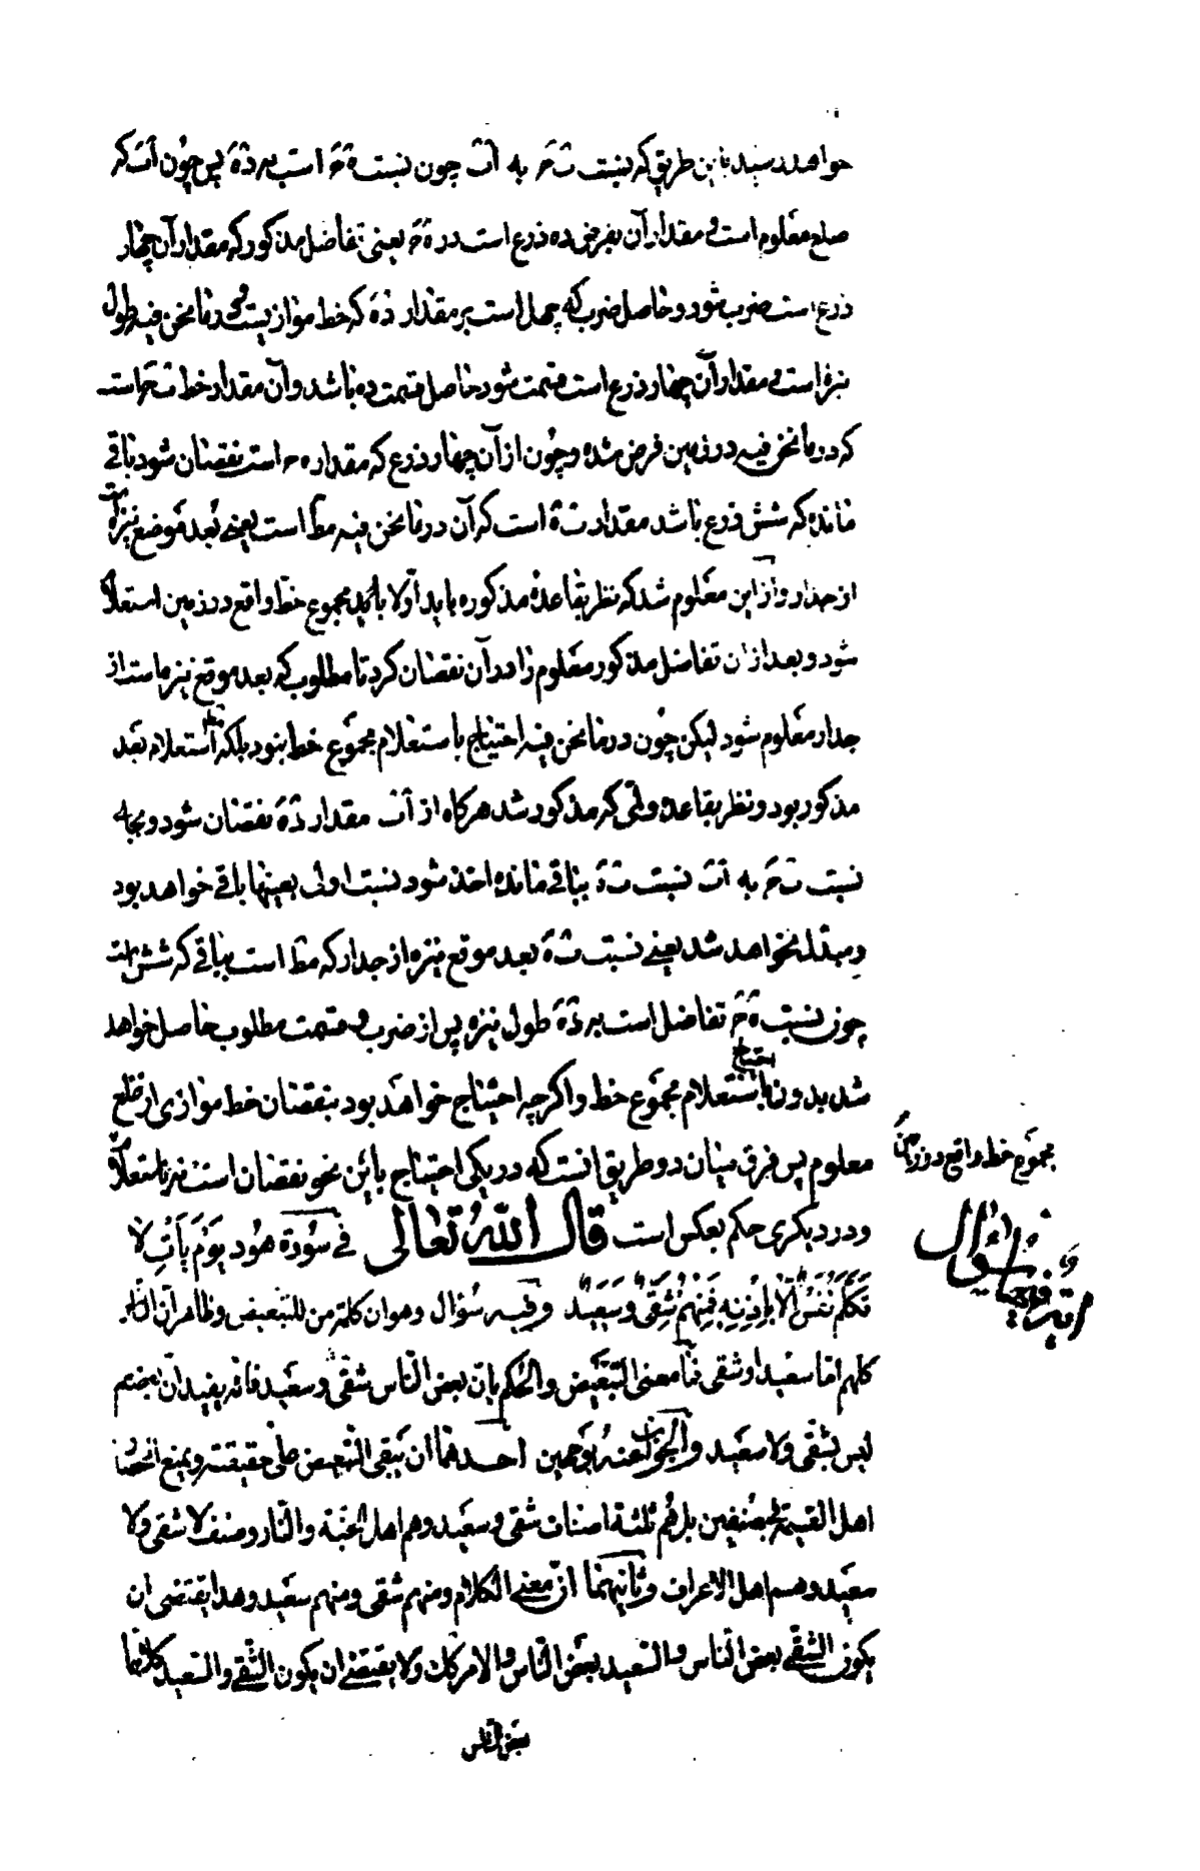 خواهد رسید باین طریق که نسبت ث ح به اث چون نسبت ه ح است به ده پس چون اث که
ضلع معلوم است و مقدار آن بفرض ده ذرع است در ه ح یعنی تفاضل مذکور که مقدار آن چهار
ذرع است ضرب شود و حاصل ضرب که چهل است بر مقدار ده که خط موازیست و در مانحن فیه طول
نیزه است و مقدار آن چهار ذرع است قسمت شود حاصل قسمت ده باشد و آن مقدار خط ث ح است
که در مانحن فیه در زمین فرض شده و چون از آن چهار ذرع که مقدار ه ح است نقصان شود باقی
مانده که شش ذرع باشد مقدار ث ه است که آن در مانحن فیه مط است یعنی بعد موضع نیزه است
از جدار و از این معلوم شد که نظر بقاعدهٔ مذکوره باید اولا باید مجموع خط واقع در زمین استعلام
شود و بعد از ان تفاضل مذکور معلوم را از آن نقصان کرد تا مطلوب که بعد موقع نیزه است از
جدار معلوم شود لیکن چون در مانحن فیه احتیاج باستعلام مجموع خط نبود بلکه استعلام بعد
مذکور بود و نظر بقاعده ولی که مذکور شد هرکاه از اث مقدار ده نقصان شود و بجای
نسبت ث ح به اث نسبت ث ه بباقی مانده اخذ شود نسبت اولی بعینها باقی خواهد بود
و مبتدل نخواهد شد یعنی نسبت ث ه بعد موقع نیزه از جدار که مط است بباقی که شش است
چون نسبت ه ح تفاضل است به ده طول نیزه پس از ضرب و قسمت مطلوب حاصل خواهد
شد بدون احتیاج باستعلام مجموع خط و اکرچه احتیاج خواهد بود بنقصان خط موازی از ضلع
معلوم پس فرق میان دو طریق انست که در یکی احتیاج باین نحو نقصان است نه باستعلام
مجموع خط واقع در زمین
و در دیکری حکم بعکس است قال الله تعالی فی سورة هود یوم یأت لا
تکلم نفس الا باذنه فمنهم شقی و سعید و فیه سؤال وهو ان کلمة من للتبعیض و ظاهر ان الناس
کلهم اما سعید او شقی فما معنی التبعیض والحکم بان بعض الناس شقی و سعید فانه یفید ان بعضهم
لیس بشقی ولا سعید والجواب عنه بوجهین احدهما ان یبقی التبعیض علی حقیقته و یمنع انحصار
اهل القیمة بصنفین بل هم ثلثة اصناف شقی و سعید وهم اهل الجنة والنار و صنف لا شقی ولا
سعید وهم اهل الاعراف وثانیهما ان معنی الکلام و منهم شقی و منهم سعید وهذا یقتضی ان
یکون الشقی بعض الناس والسعید بعض الناس والامر کک ولا یقتضی ان یکون الشقی والسعید کلاهما
بعض الناس